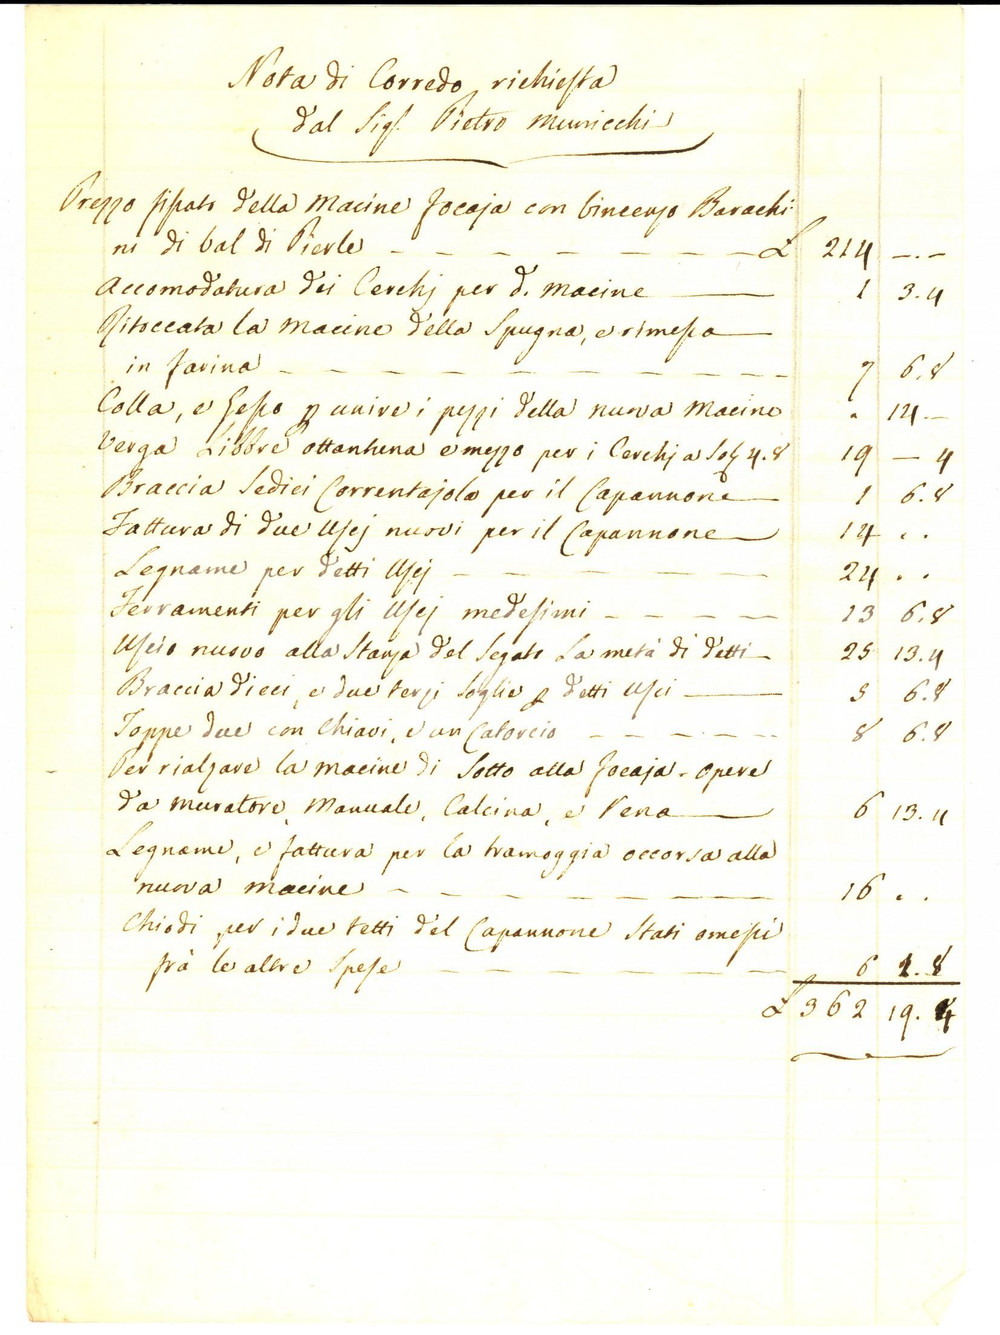 Nota di Corredo richiesta
dal Sigr. Pietro Municchi
Prezzo fissato della Macine focaja con Vincenzo Barachi-
ni di Val di Pierle £ 214 -.-
Accomodatura dei Cerchj per d. Macine 1 3.4
Ritoccata la Macine della Spugna, e rimessa
in farina 7 6.8
Colla, e Gesso p unire i pezzi della nuova Macine . 14 -
Verga Libbre ottantuna e mezzo per i Cerchj a Sol 4.8 19 - 4
Braccia Sedici Correntajolo per il Capannone 1 6.8
Fattura di due Uscj nuovi per il Capannone 14 . .
Legname per detti Uscj 24 . .
Ferramenti per gli Uscj medesimi 13 6.8
Uscio nuovo alla Stanza del Segato La metà di detti 25 13.4
Braccia dieci, e due terzi Soglie p detti Usci 5 6.8
Toppe due con Chiavi, e un Catorcio 8 6.8
Per rialzare la macine di Sotto alla focaja - opere
da muratore, Manuale, Calcina, e Rena 6 13.4
Legname, e fattura per la tramoggia occorsa alla
nuova macine 16 . .
Chiodi per i due tetti del Capannone Stati omessi
frà le altre Spese 6 1.8
£ 362 19.4